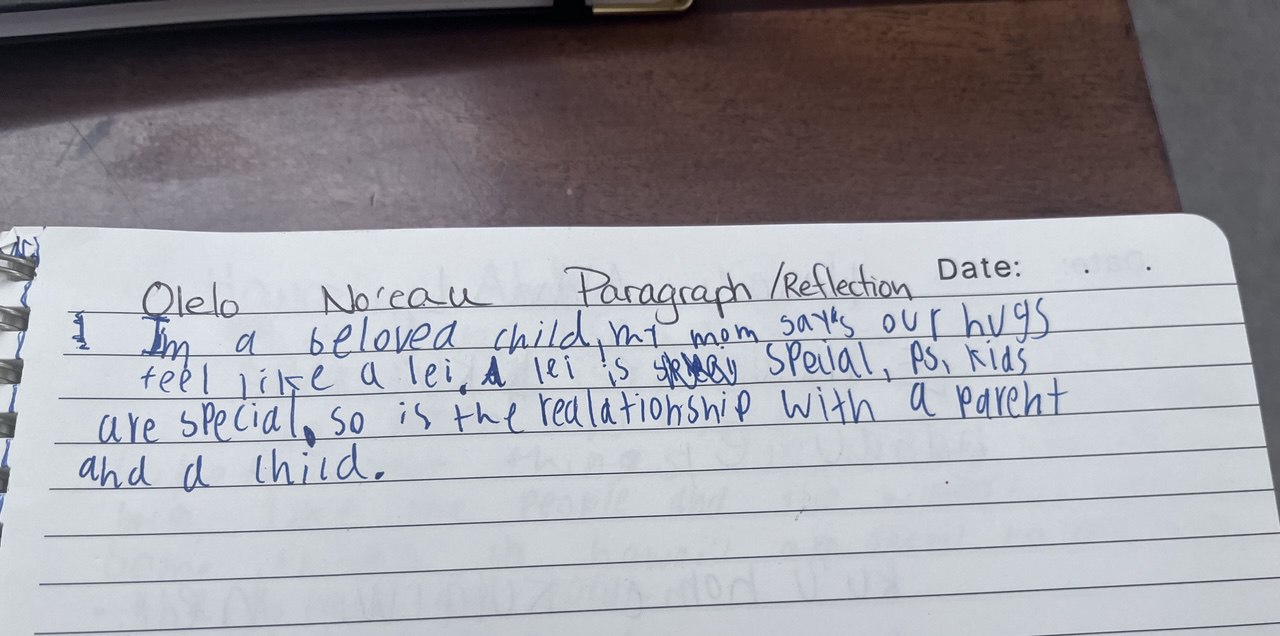 Olelo No'eau Paragraph /Reflection Date: . .
Im a beloved child, my mom say's our hugs
feel like a lei. A lei is special, Ps, kids
are special, so is the realationship with a parent
and a child.